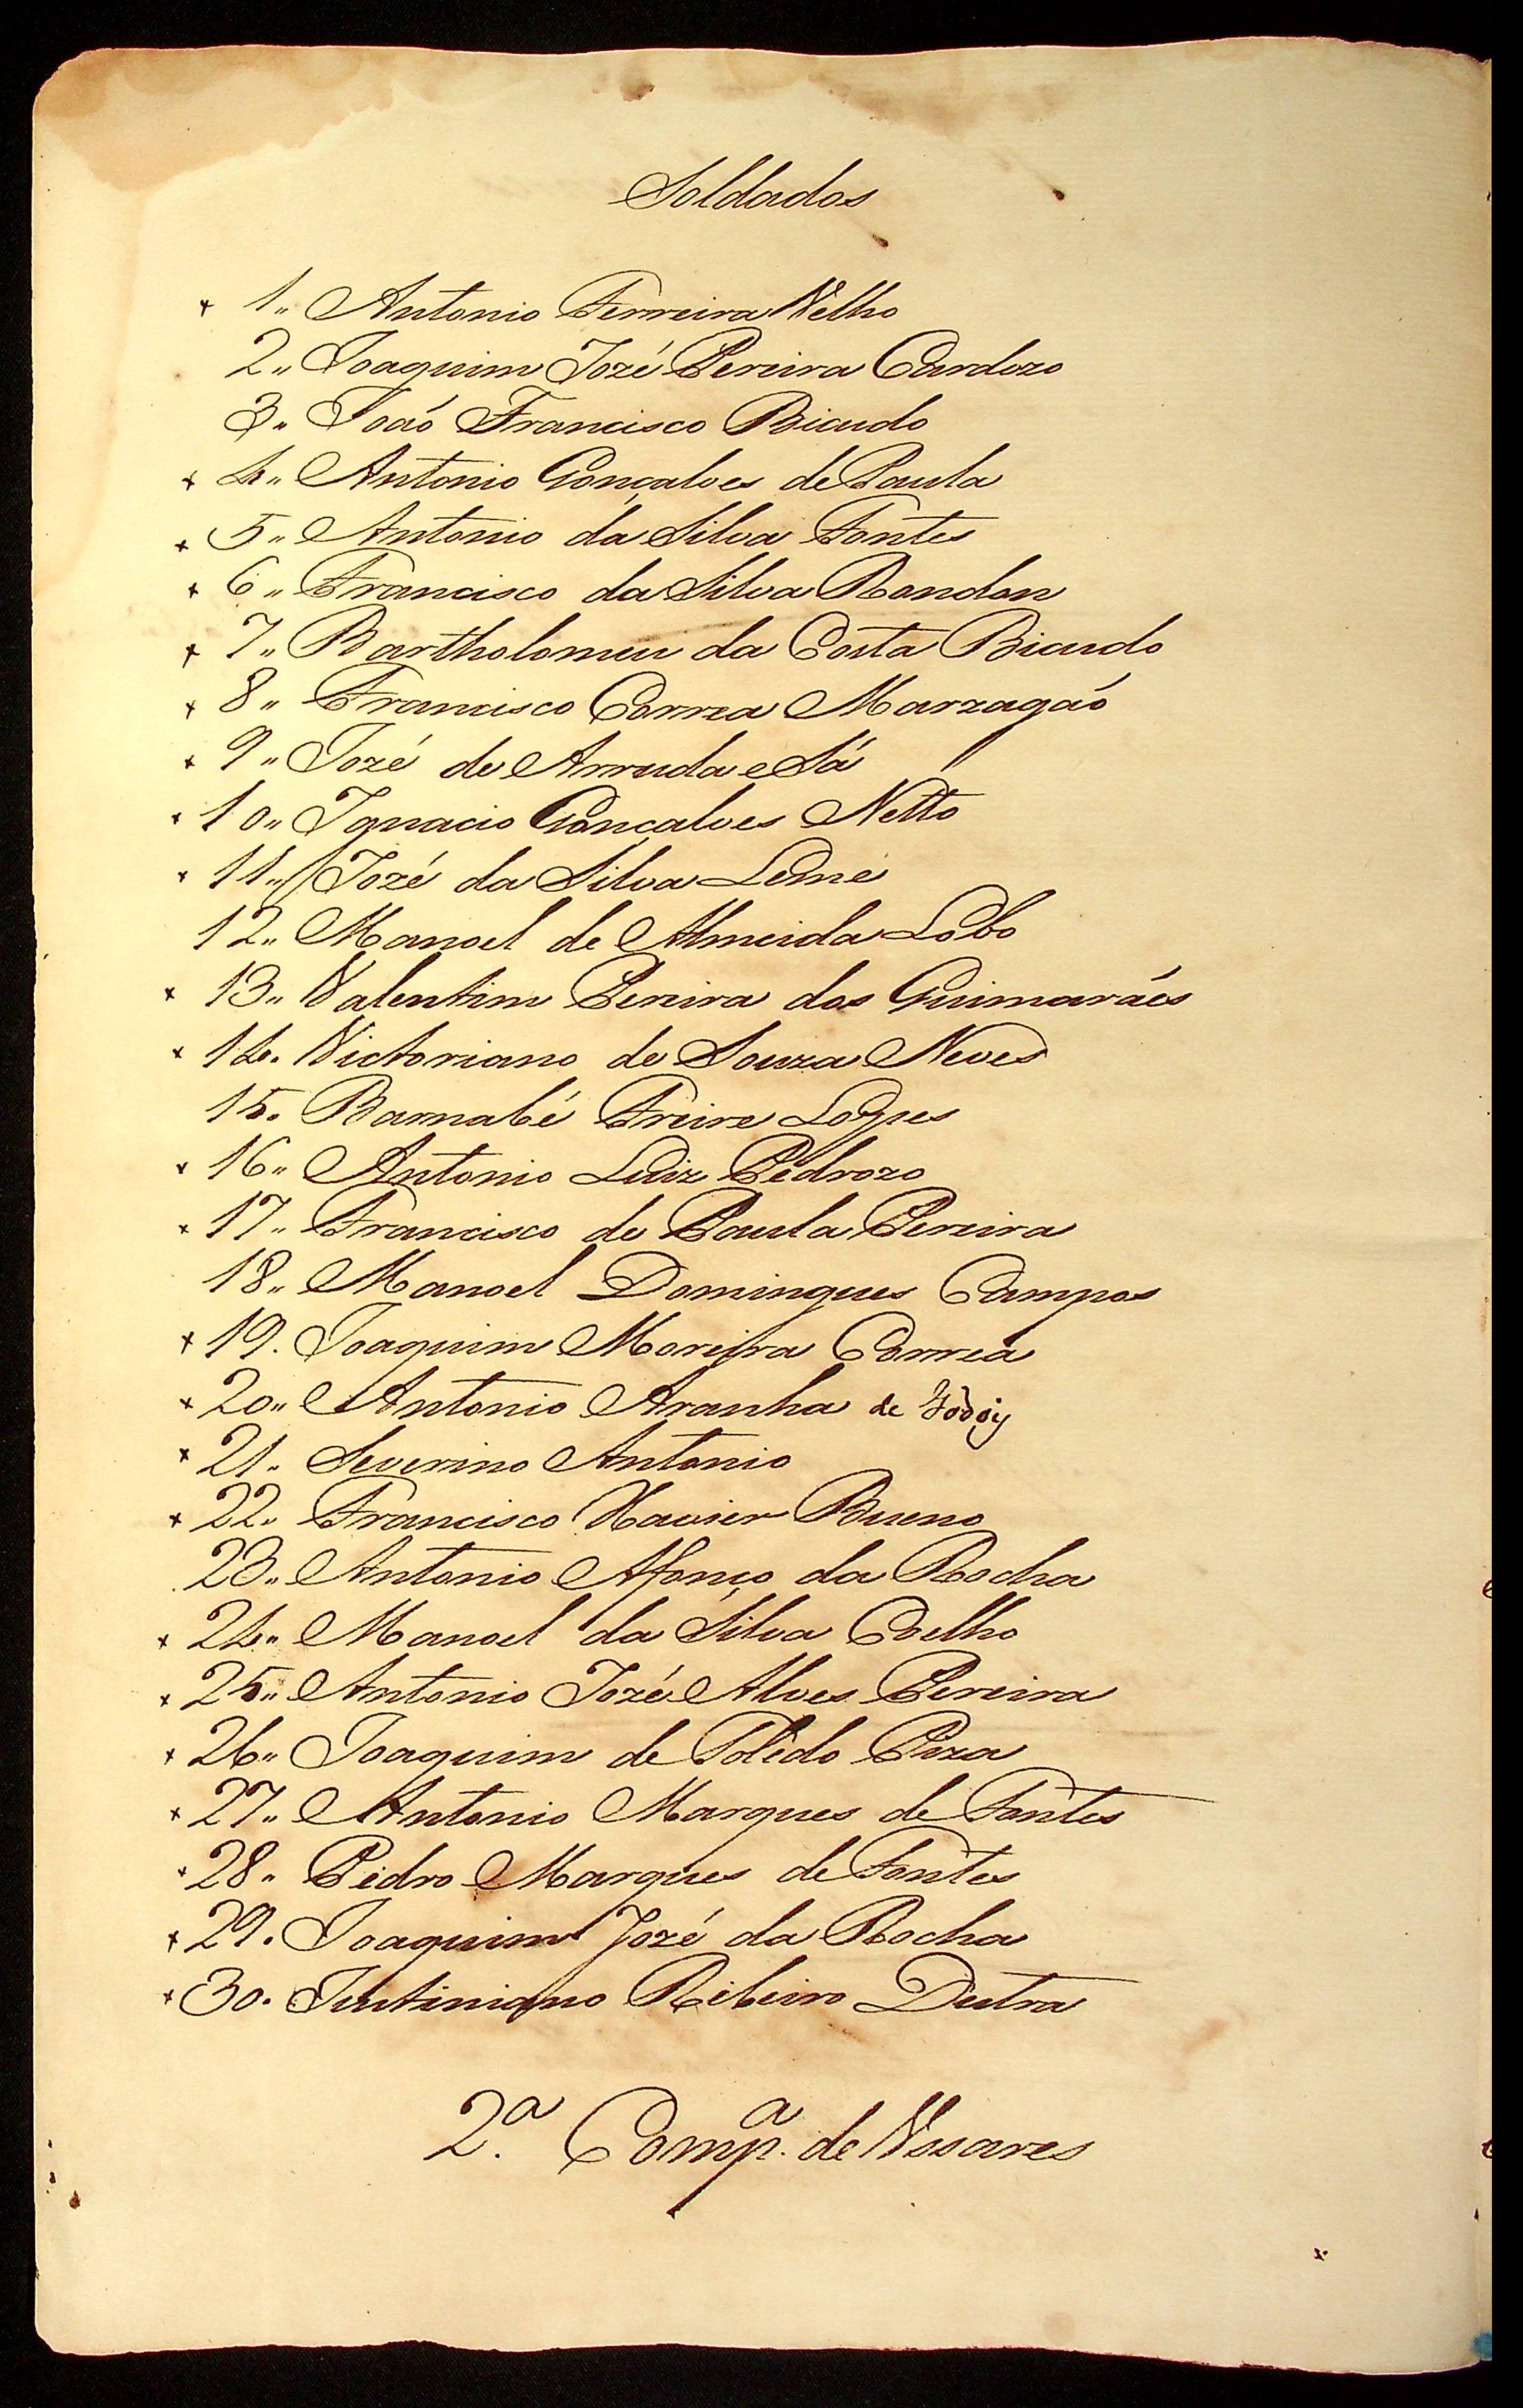 Soldados
+ 1,, Antonio Ferreira Velho
2,, Joaquim Jozé Pereira Cardozo
3,, Joaó Francisco Bicudo
+ 4,, Antonio Gonçalves de Paula
+ 5,, Antonio da Silva Fontes
+ 6,, Francisco da Silva Rondon
+ 7,, Bartholomeu da Costa Bicudo
+ 8,, Francisco Correa Marzagaó
+ 9,, Jozé de Arruda e Sá
+ 10,, Ignacio Gonçalves Netto
+ 11,, Jozé da Silva Leme
12,, Manoel de Almeida Lobo
+ 13,, Valentim Pereira dos Guimaráes
+ 14. Victoriano de Souza Neves
15. Barnabé Freire Lopes
+ 16,, Antonio Luiz Pedrozo
+ 17,, Francisco de Paula Pereira
18,, Manoel Domingues Campos
+ 19. Joaquim Moreira Correa
+ 20,, Antonio Aranha de Godoy
+ 21. Severino Antonio
+ 22. Francisco Xavier Bueno
23,, Antonio Afonço da Rocha
+ 24,, Manoel da Silva Coelho
+ 25,, Antonio Jozé Alves Pereira
+ 26,, Joaquim de Toledo Piza
+ 27,, Antonio Marques de Fontes
+ 28,, Pedro Marques de Fontes
+ 29. Joaquim Jozé da Rocha
+ 30. Justiniano Ribeiro Dutra
2.ª Comp.ª de Vssares